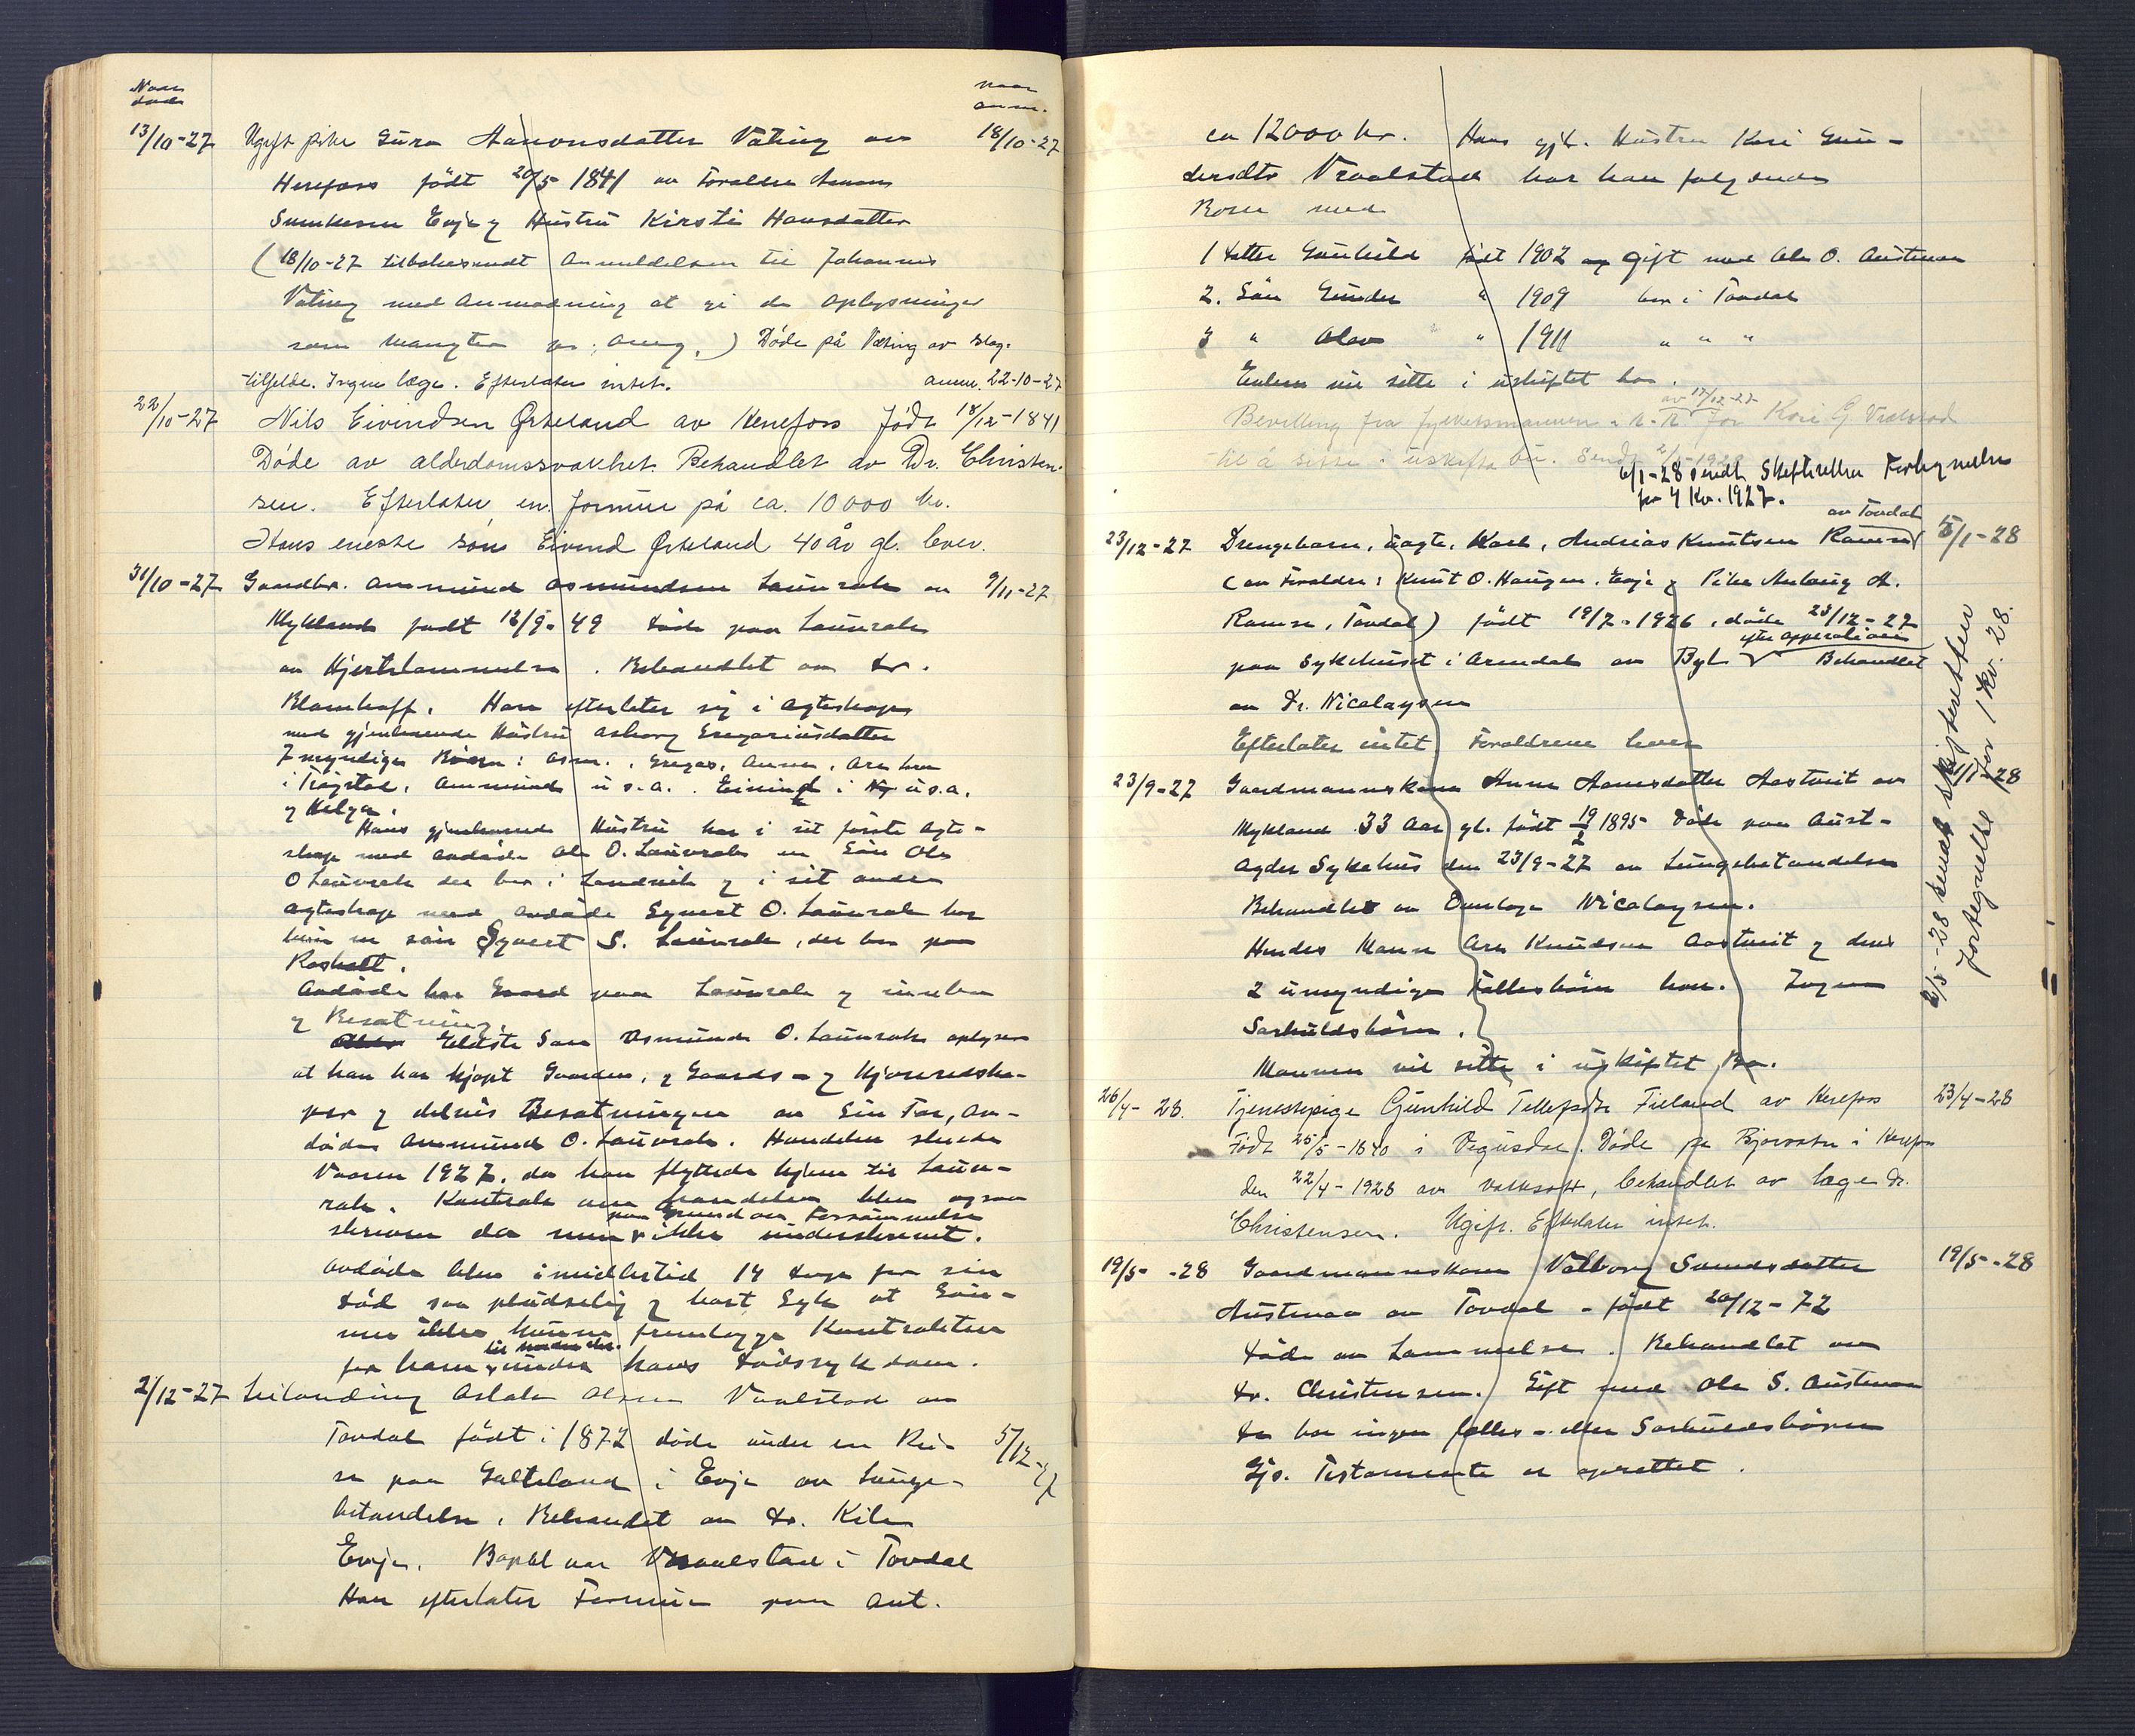 Naar død
naar anm.
13/10-27 Ugift pike Guro Aanonsdatter Våting av 18/10-27
Herefoss født 20/5 1841 av Foraldre Aanon
Evje og Hustru Kirsti Hansdatter
(18/10-27 tilbakesendt Anmeldelsen til Johannes
Våting med Anmodning at gi de oplysninger
som mangter ) Døde på Våting av slag-
tilfelde. Ingen læge. Efterlater intet. anm. 22-10-27
22/10-27 Nils Eivindsen Ørkeland av Herefoss født 18/12-1841
Døde av alderdomssvakhet. Behandlet av Dr. Christen-
sen. Efterlater en formue på ca. 10000 kr.
Hans eneste søn Eivind Ørkeland 40 år gl. lever.
31/10-27 Gaardbr. Aanmund Osmundsen Lauvrak av 9/11-27
Mykland født 12/9-49 døde paa Lauvrak
av Hjertelammelse. Behandlet av Dr.
Blomhoff. Han efterlater sig i Ægteskap
med gjenlevende Hustru Asborg Gregoriusdatter
7 myndige Børn: Osm., Gregar, Anne, Are
i Trøgstad, Aanmund U.S.A. Eivind i U.S.A.
og Helga.
Hans gjenlevende Hustru har i sit første Ægte-
skap med avdøde Ole O. Lauvrak en Søn Ole
O Lauvrak der bor i Landvik og i sit andre
Ægteskap med avdøde Syvert O. Lauvrak har
hun en søn Syvert S. Lauvrak, der bor paa
Rosholt.
Avdøde har Gaard paa Lauvrak og innbo
og Besætning.
Eldste Søn Osmund O. Lauvrak oplyser
at han har kjøpt Gaarden, og Gaards- og Kjøreredska-
per og delvis Besætningen av sin Far, av-
døde Aanmund O. Lauvrak. Handelen skjedde
Vaaren 1927, da han flyttede hjem til Lauv-
rak. Kontrakt om handelen blev ogsaa
skreven da men paa Grund av Forsømmelse ikke underskrevet.
Avdøde blev imidlertid 14 Dage før sin
Død saa pludselig og hart Syk at Søn-
nen ikke kunne fremlægge Kontrakten
for ham til underskr. under hans Dødssykdom.
2/12-27 Aslak Olsen Vraalstad av
Tovdal født i 1872 døde under en Rei- 5/12-27
se paa Galteland i Evje av Lunge-
betændelse. Behandlet av Dr. Kile
Evje. Bopæl var Vraalstad i Tovdal
Han efterlater Formue paa ant.
ca 12000 kr. Hans gjl. Hustru Kari Gun-
dersdtr Vraalstad har han følgende
Born med
1 Datter Gunhild født 1902 og gift med Ole O. Austenaa
2. Søn Gunder " 1909 bor i Tovdal
3 " Olav " 1911 " " "
Enken vil sitte i uskiftet bo.
Bevilling fra fylkesmannen av 17/12-27 for Kari G. Vralstad
til å sitte i uskifta bu. Sendt 2/1-1928
6/1-28 sendt Skifteretten Fortegnelse
for 4 Kv. 1927.
23/12-27 Drengebarn, uægte, Karl, Andreas Knutsen Ramse av Tovdal 5/1-28
(av Foraldre: Knut O. Haugen, Evje og Pike Anlaug A.
Ramse, Tovdal) født 19/7-1926, døde 23/12-27
paa Sykehuset i Arendal av Byl efter opperation Behandlet
av Dr. Nicolaysen
Efterlater intet. Foraldrene lever
23/9-27 Gaardmannskone Anne Aanesdatter Aastveit av 28
Mykland 33 Aar gl. født 19/2 1895 Døde paa Aust-
Agder Sykehus den 23/9-27 av Lungebetændelse
Behandlet av Overlæge Nicolaysen.
Hendes Mann Are Knudsen Aastveit og deres
2 umyndige Fællesbørn lever. Ingen
Særkuldsbørn.
Mannen vil sitte i uskiftet Bo.
2/5-28 sendt skifteretten
fortegnelse for 1 kv. 28.
26/4-28. Tjenestepige Gunhild Tellefsdtr Fieland av Herefoss 23/4-28
Født 25/5-1840 i Vegusdal. Døde på Bjorvatn i Herefoss
den 22/4-1928 av vatersott, behandlet av læge Dr.
Christensen. Ugift. Efterlater intet.
19/5-28 Gaardmannskone Valborg Samdsdatter 19/5-28
Austenaa av Tovdal - født 20/12-72
døde av Lammelse. Behandlet av
Dr. Christensen. Gift med Ole S. Austenaa
De har ingen fælles- eller Særkuldsbørn
Gjs. Testamente er oprettet.